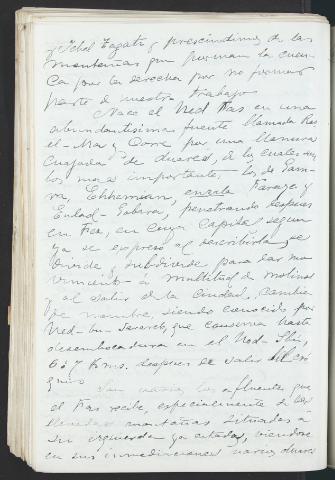 y Tchel Zagatt y prescindimos de las
montañas que forman la cuen-
ca por la derecha por no formar
parte de nuestro trabajo
Nace el Ued Fas en una
abundantisima fuente llamada Ras
el-Ma y corre por una llanura
cuajada de duares, de los cuales son
los mas importantes los de
Farayi y
penetrando despues
en Fez, en cuya Capital segun
ya se expresó al describirla, se
divide y subdivide para dar mo-
vimiento a multitud de molinos
y al salir de la Ciudad, cambia
de nombre, siendo conocido por
Ued-bu que conserva hasta
desembocadura en el Ued-Sbu,
6 ó 7 Kms. despues de salir del
Son varios los afluentes que
el Fas recibe, especialmente de las
montañas situadas á
su izquierda ya citadas, viendose
en sus inmediaciones varios